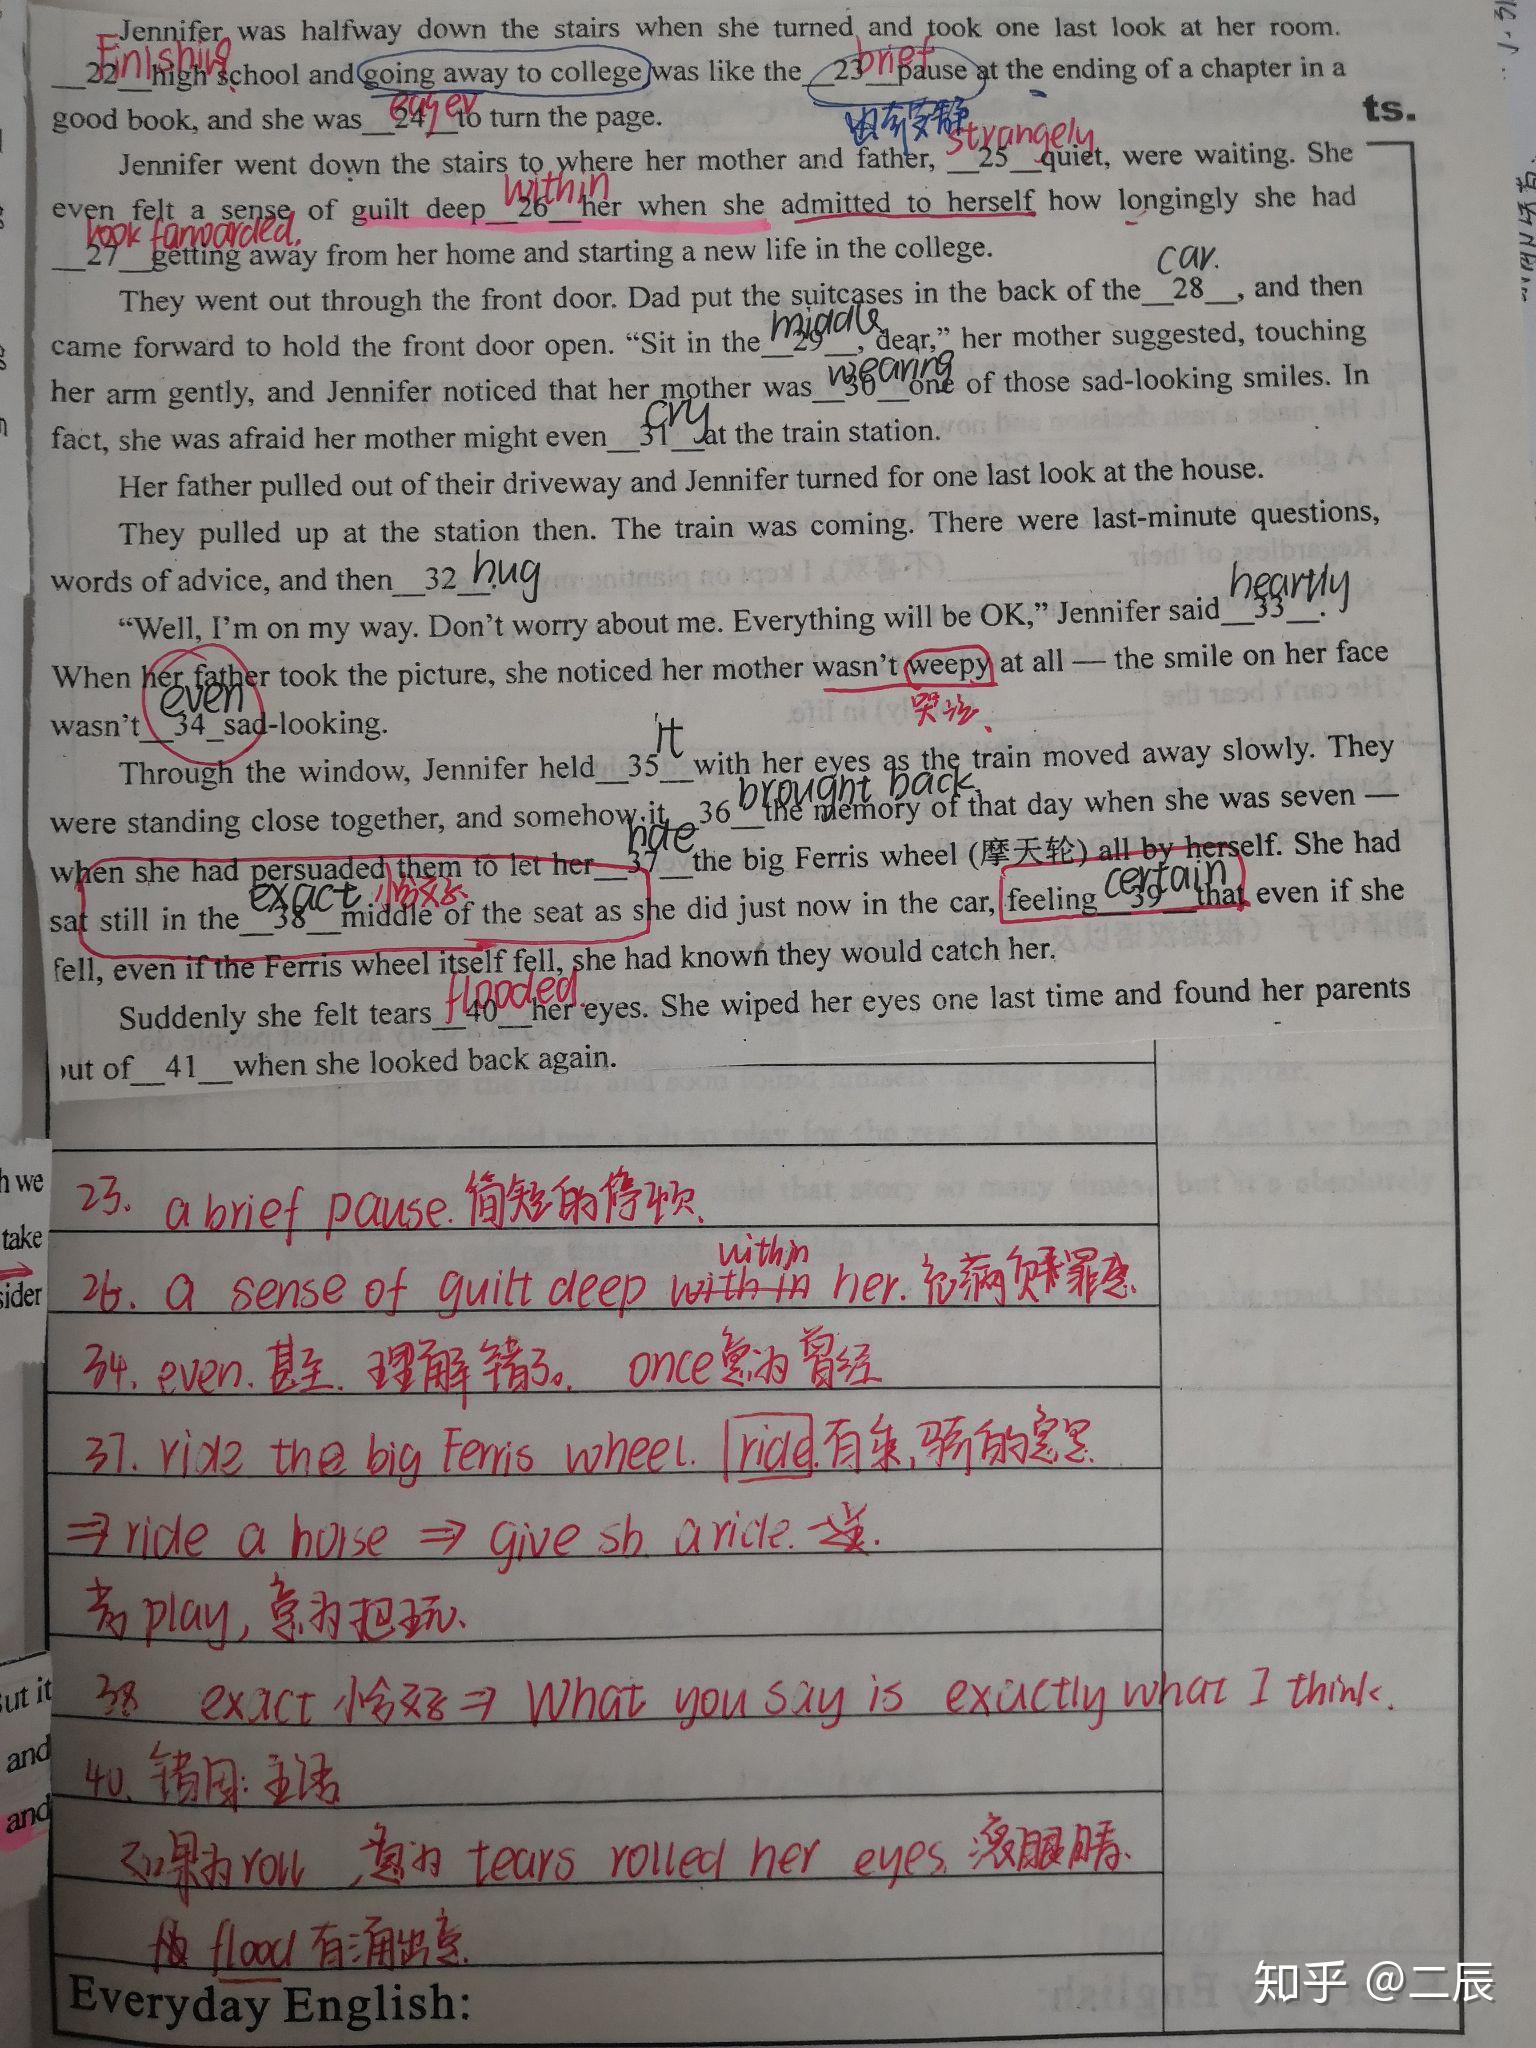 Jennifer was halfway down the stairs when she turned and took one last look at her room.
Finishing brief
__22__high school and going away to college was like the__23__pause at the ending of a chapter in a
eager
good book, and she was__24__to turn the page.
ts.
strangely
Jennifer went down the stairs to where her mother and father,__25__quiet, were waiting. She
within
even felt a sense of guilt deep__26__her when she admitted to herself how longingly she had
look farwarded.
__27__getting away from her home and starting a new life in the college.
car.
They went out through the front door. Dad put the suitcases in the back of the__28__, and then
middle
came forward to hold the front door open. “Sit in the__29__, dear,” her mother suggested, touching
wearing
her arm gently, and Jennifer noticed that her mother was__30__one of those sad-looking smiles. In
cry
fact, she was afraid her mother might even__31__at the train station.
Her father pulled out of their driveway and Jennifer turned for one last look at the house.
They pulled up at the station then. The train was coming. There were last-minute questions,
words of advice, and then__32__. hug
heartly
“Well, I’m on my way. Don’t worry about me. Everything will be OK,” Jennifer said__33__.
When her father took the picture, she noticed her mother wasn’t weepy at all — the smile on her face
even
wasn’t__34_sad-looking.
it
Through the window, Jennifer held__35__with her eyes as the train moved away slowly. They
brought back
were standing close together, and somehow it__36__the memory of that day when she was seven —
when she had persuaded them to let her__37__the big Ferris wheel (摩天轮) all by herself. She had
exact 恰好 certain
sat still in the__38__middle of the seat as she did just now in the car, feeling__39__that even if she
fell, even if the Ferris wheel itself fell, she had known they would catch her.
flooded.
Suddenly she felt tears__40__her eyes. She wiped her eyes one last time and found her parents
out of__41__when she looked back again.
h we
take
sider
23. a brief pause. 简短的停顿.
within
26. a sense of guilt deep with in her. 负罪感.
34. even. 甚至. 理解错了. once意为曾经
37. ride the big Ferris wheel. ride 有乘, 骑的意思.
⇒ ride a horse ⇒ give sb a ride. 
若 play, 意为把玩.
38 exact 恰好 ⇒ What you say is exactly what I think.
40. 错因: 主语
如果为 roll, 意为 tears rolled her eyes. 滚眼睛.
flood 有涌出意.
but it
and
and
Everyday English:
知乎 @二辰